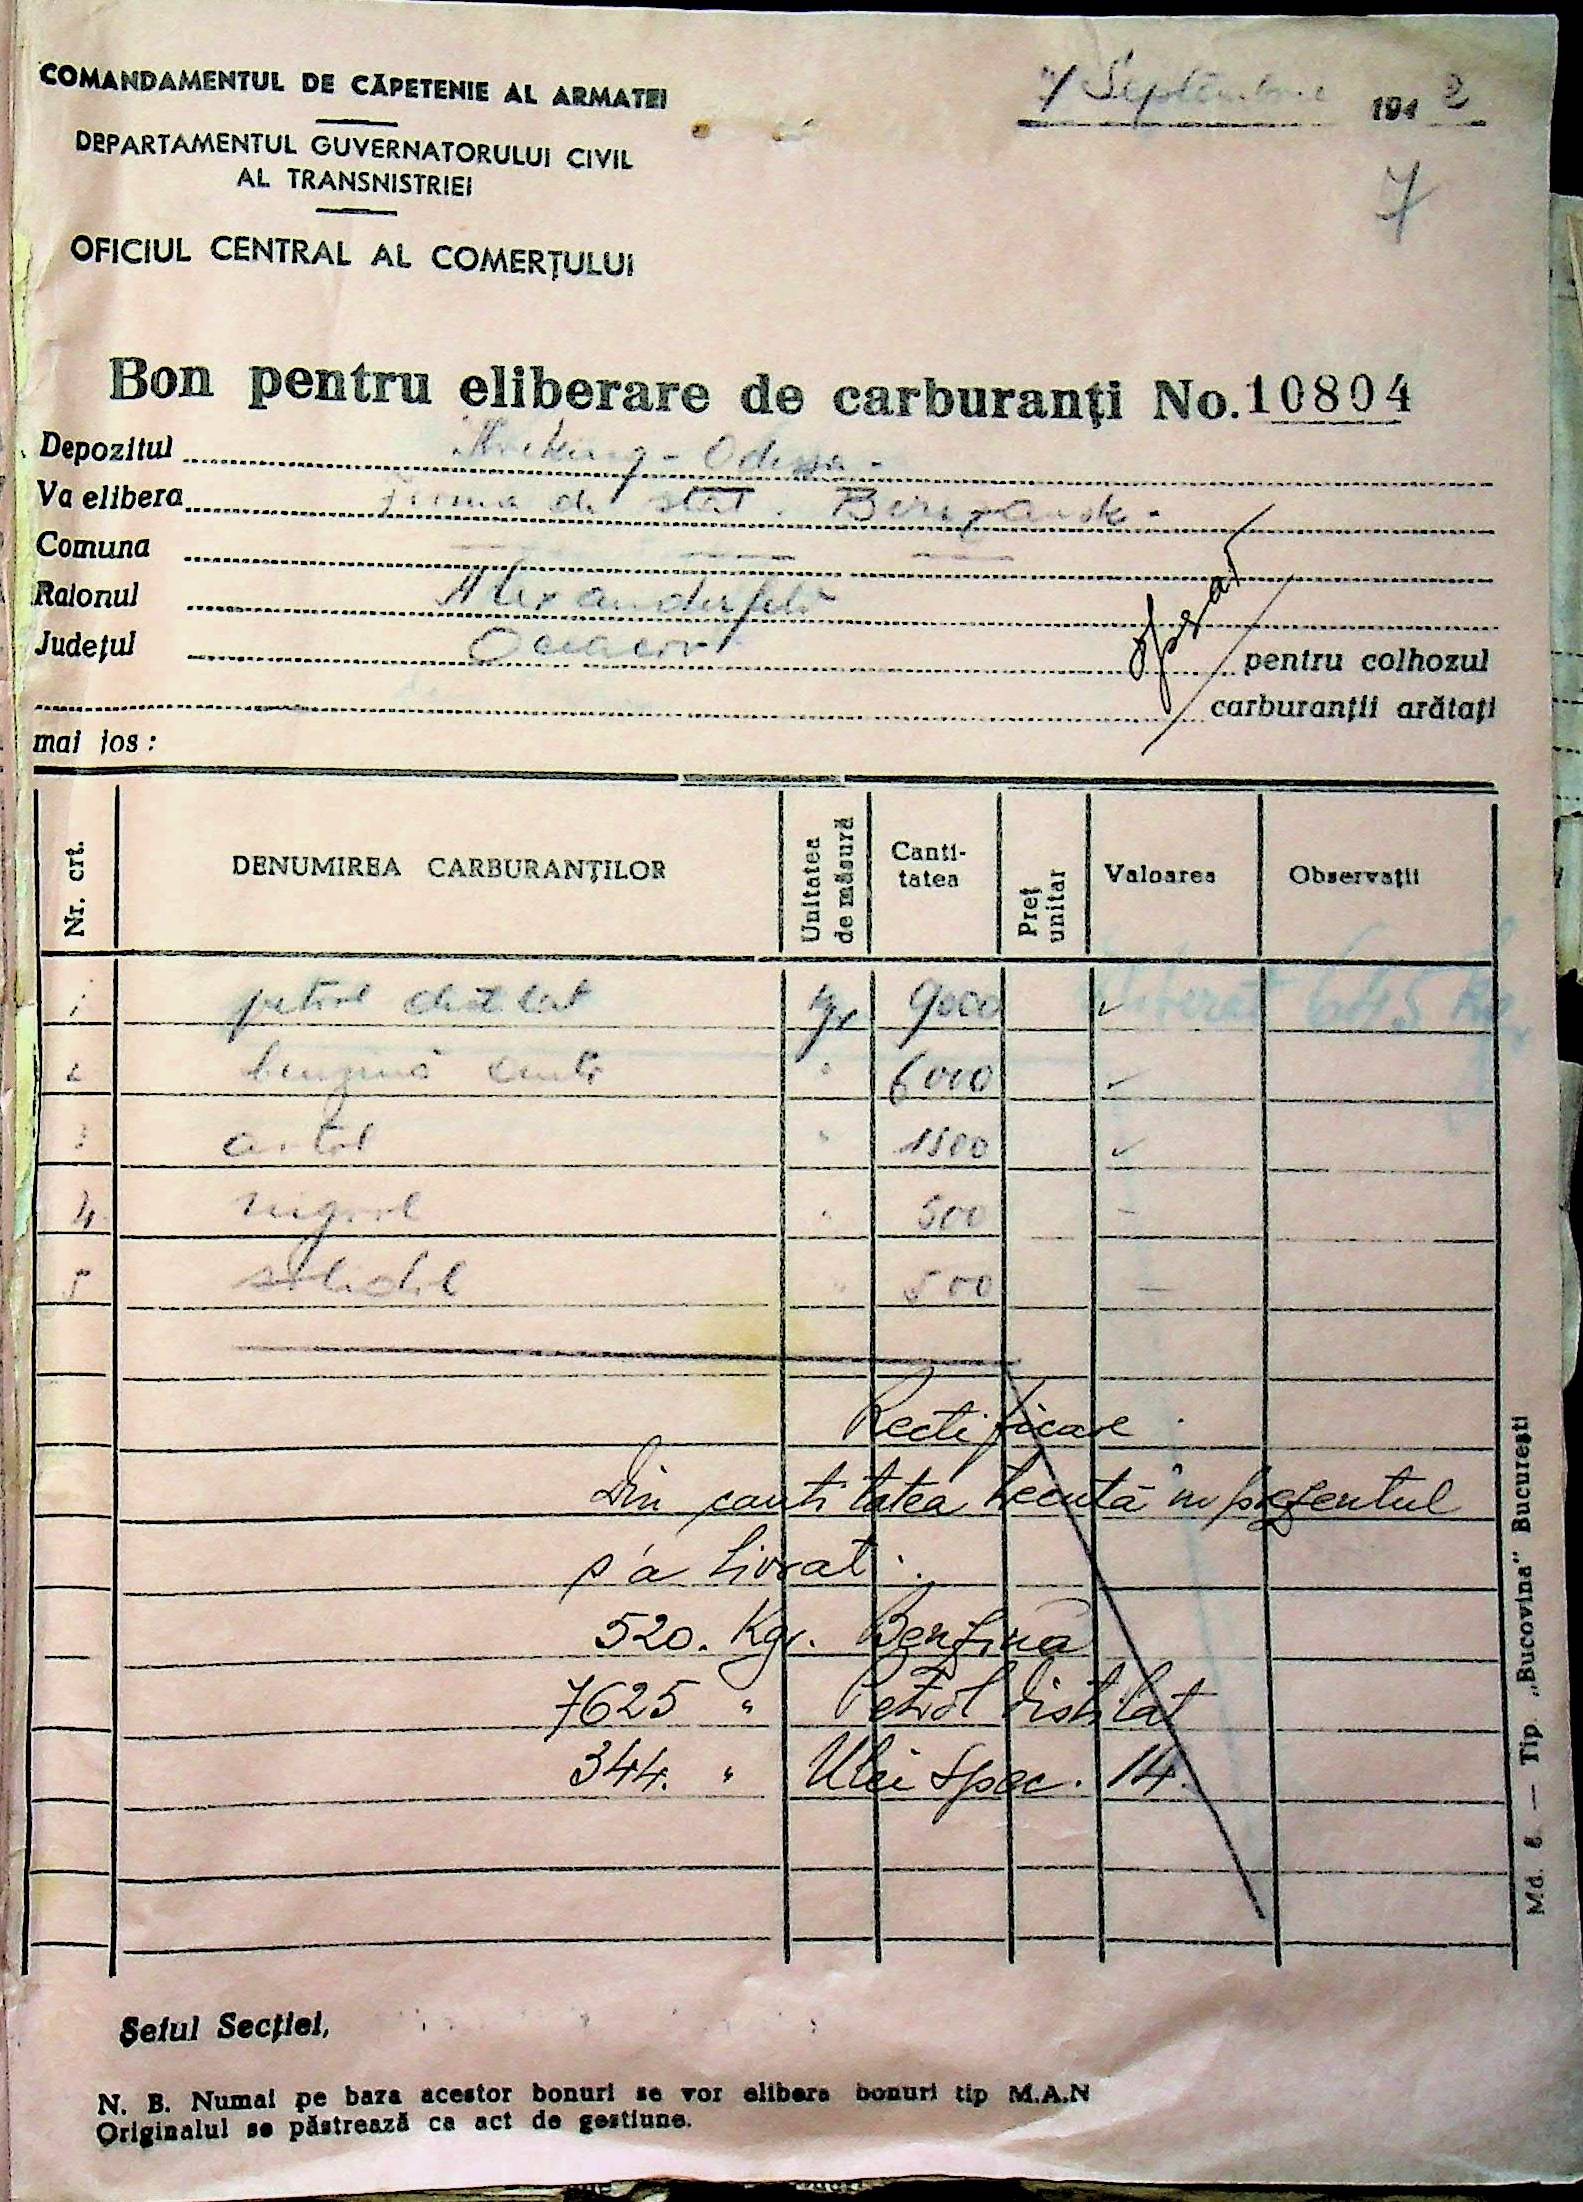 COMANDAMENTUL DE CĂPETENIE AL ARMATEI
7 Septembrie 1942
DEPARTAMENTUL GUVERNATORULUI CIVIL
AL TRANSNISTRIEI
7
OFICIUL CENTRAL AL COMERȚULUI
Bon pentru eliberare de carburanți No. 10804
Depozitul - Odessa -
Va elibera ferma de stat Berezansk -
Comuna
Raionul Alexanderfeld
Județul Oceacov pentru colhozul
operat
carburanții arătați
mai jos:
Nr. crt. DENUMIREA CARBURANȚILOR Unitatea de măsură Cantitatea Preț unitar Valoarea Observații
1 petrol distilat kgr 9000 eliberat 645 Kg
2 benzină auto " 6000
3 avtol " 1500
4 nigrol " 500
5 solidol " 500
Rectificare
Din cantitatea trecută în prezentul
s'a livrat:
520. Kgr. Benzină
7625 " Petrol distilat
344. " Ulei spec. 14.
Șeful Secției,
N. B. Numai pe baza acestor bonuri se vor elibera bonuri tip M.A.N
Originalul se păstrează ca act de gestiune.
Md. 6 — Tip. „Bucovina" București